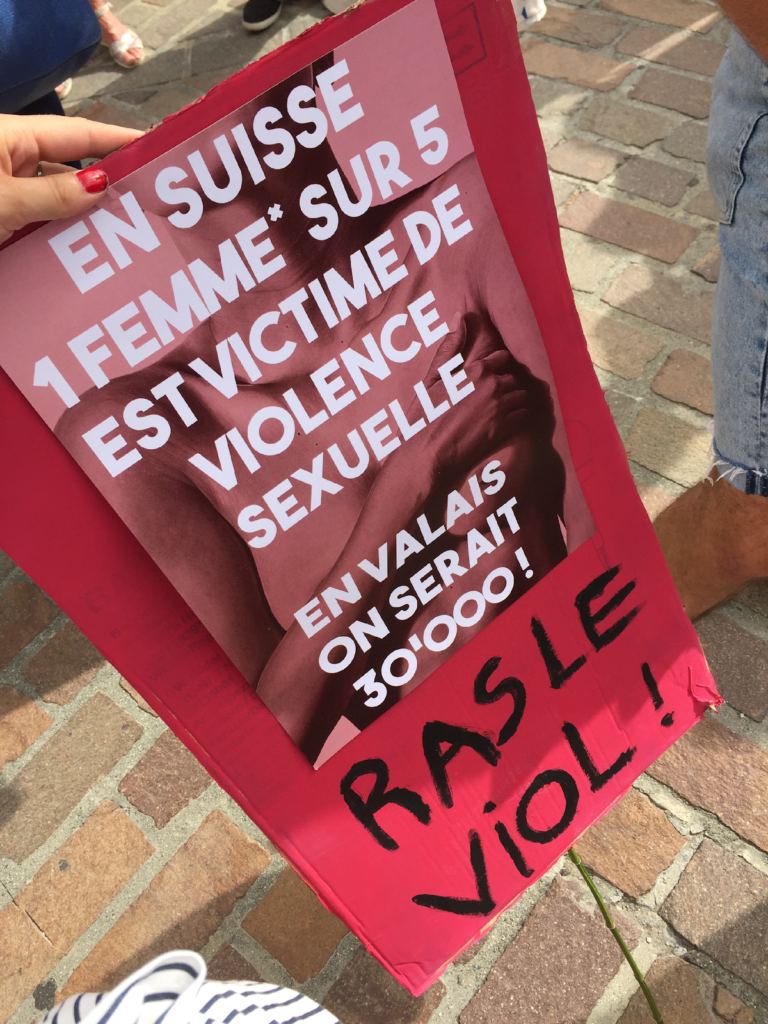 EN SUISSE
1 FEMME* SUR 5
EST VICTIME DE
VIOLENCE
SEXUELLE
EN VALAIS
ON SERAIT
30'000 !
RAS LE
VIOL !